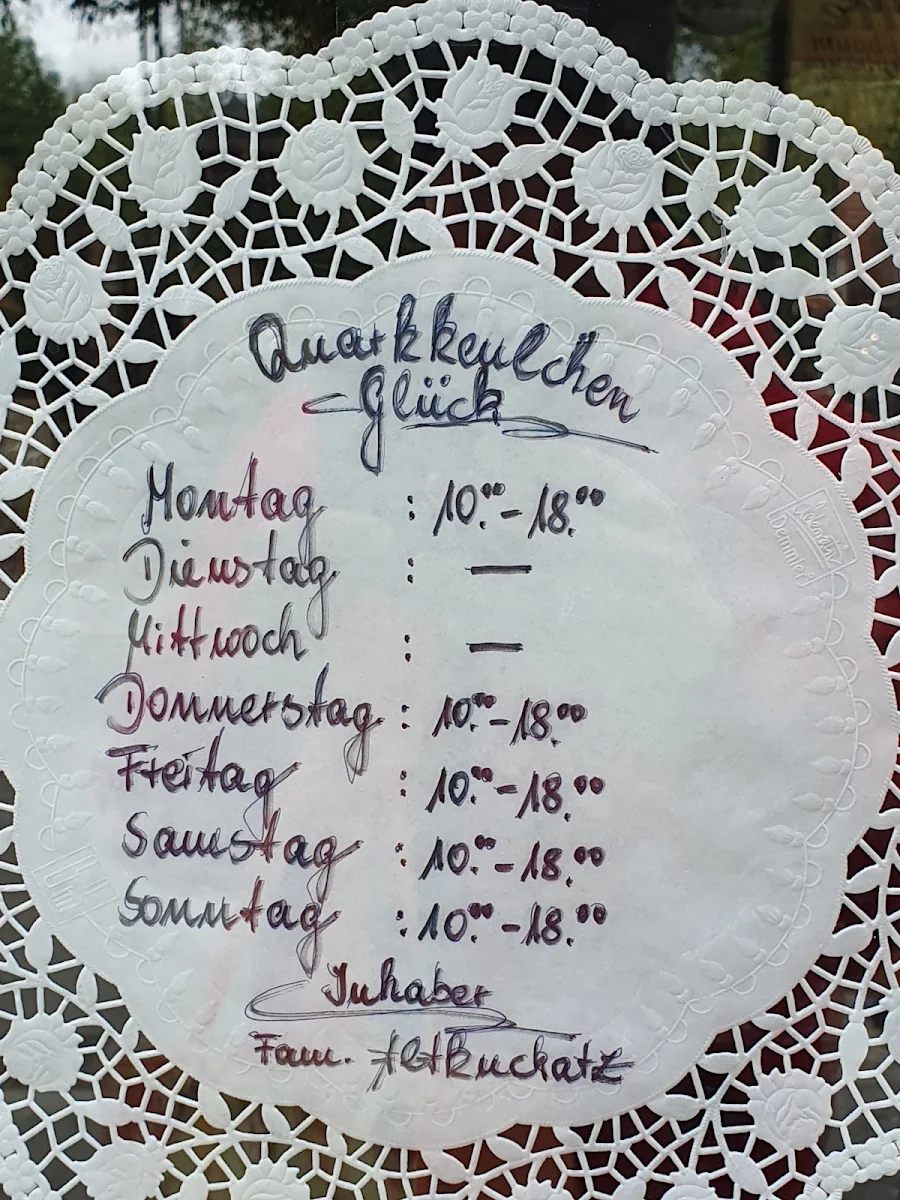 Quarkkeulchen
Glück
Montag : 10.⁰⁰ - 18.⁰⁰
Dienstag : —
Mittwoch : —
Donnerstag : 10.⁰⁰ - 18.⁰⁰
Freitag : 10.⁰⁰ - 18.⁰⁰
Samstag : 10.⁰⁰ - 18.⁰⁰
Sonntag : 10.⁰⁰ - 18.⁰⁰
Inhaber
Fam.